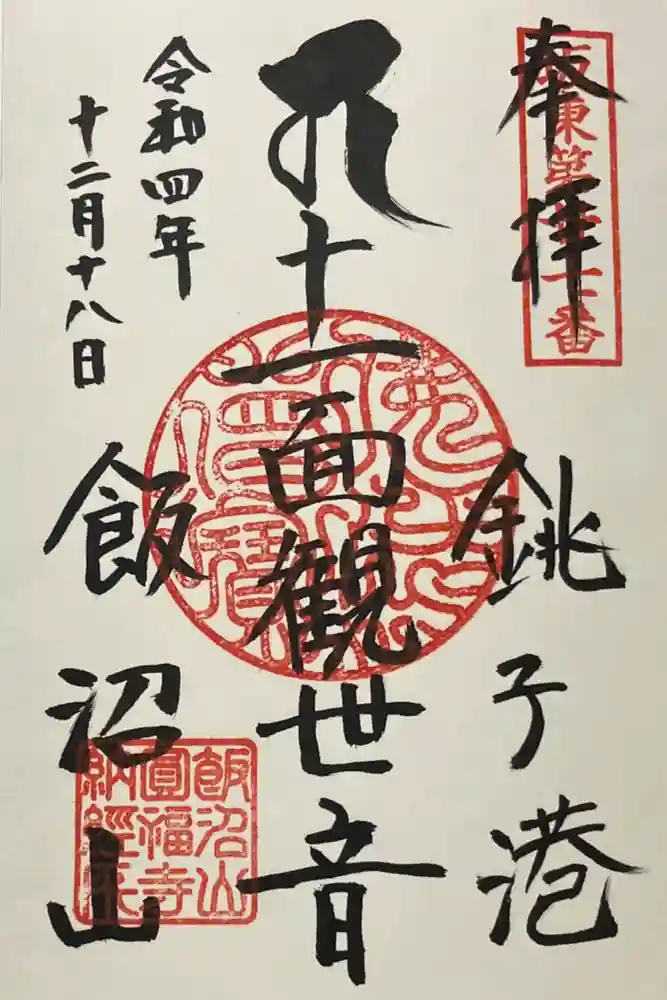 奉拝
坂東第廿七番
銚子港
十一面観世音
飯沼山
令和四年
十二月十八日
飯沼山
圓福寺
納經之印